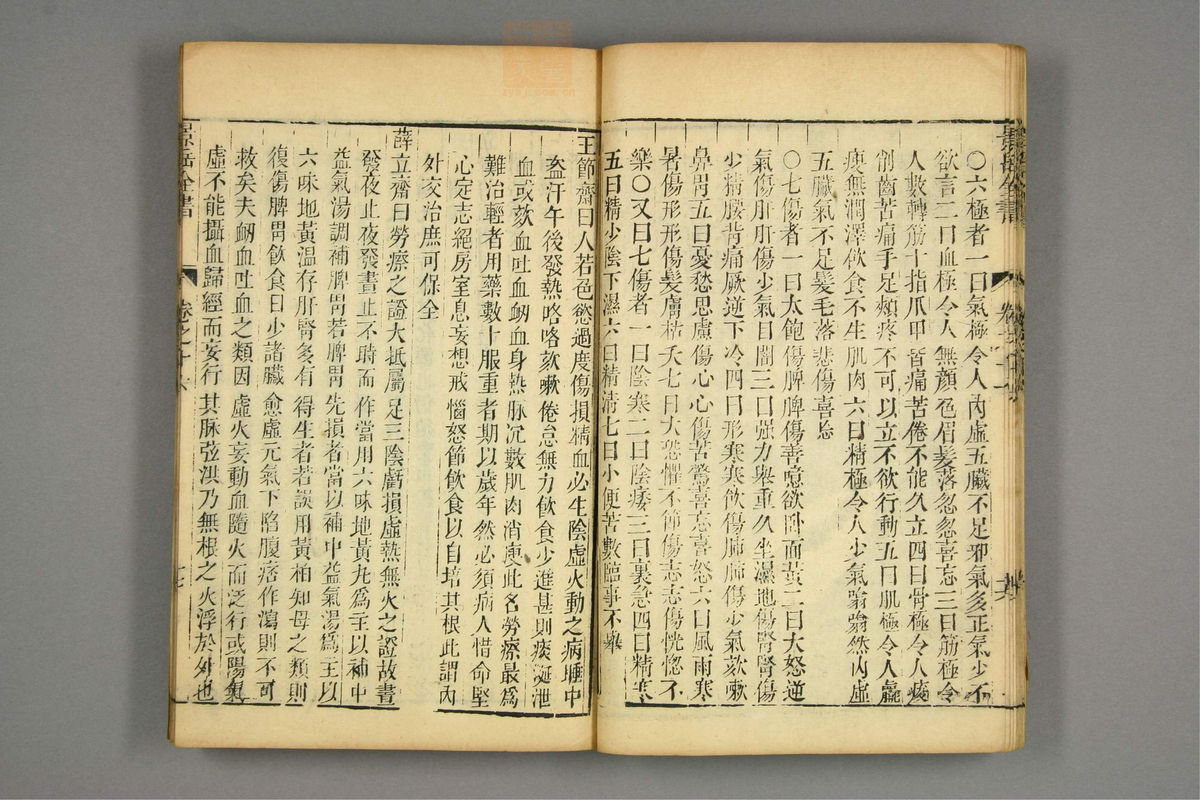 景岳全書
〇六極者一曰氣極令人內虛五臟不足邪氣多正氣少不
欲言二曰血極令人無顏色眉髮落忽忽喜忘三曰筋極令
人數轉筋十指爪甲皆痛苦倦不能久立四曰骨極令人痠
削齒苦痛手足煩疼不可以立不欲行動五曰肌極令人羸
瘦無潤澤飲食不生肌肉六曰精極令人少氣翕翕然內虛
五臟氣不足髮毛落悲傷喜忘
〇七傷者一曰太飽傷脾脾傷善噫欲臥面黃二曰大怒逆
氣傷肝肝傷少氣目闇三曰强力舉重久坐濕地傷腎腎傷
少精腰背痛厥逆下冷四曰形寒寒飲傷肺肺傷少氣欬嗽
鼻鳴五曰憂愁思慮傷心心傷苦驚喜忘善怒六曰風雨寒
暑傷形形傷髮膚枯夭七曰大恐懼不節傷志志傷恍惚不
樂〇又曰七傷者一曰陰寒二曰陰痿三曰裏急四曰精
五曰精少陰下濕六曰精清七曰小便苦數臨事不舉
王節齋曰人若色慾過度傷損精血必生陰虛火動之病睡中
盜汗午後發熱咯咯欬嗽倦怠無力飲食少進甚則痰涎泄
血或欬血吐血衂血身熱脉沉數肌肉消瘦此名勞瘵最爲
難治輕者用藥數十服重者期以歲年然必須病人惜命堅
心定志絕房室息妄想戒惱怒節飲食以自培其根此謂內
外交治庶可保全
薛立齋曰勞瘵之證大抵屬足三陰虧損虛熱無火之證故晝
發夜止夜發晝止不時而作當用六味地黃丸爲主以補中
益氣湯調補脾胃若脾胃先損者當以補中益氣湯爲主以
六味地黃温存肝腎多有得生者若誤用黃柏知母之類則
復傷脾胃飲食日少諸臟愈虛元氣下陷腹痞作瀉則不可
救矣夫衂血吐血之類因虛火妄動血隨火而泛行或陽氣
虛不能攝血歸經而妄行其脉弦洪乃無根之火浮於外也
景岳全書
卷之十六